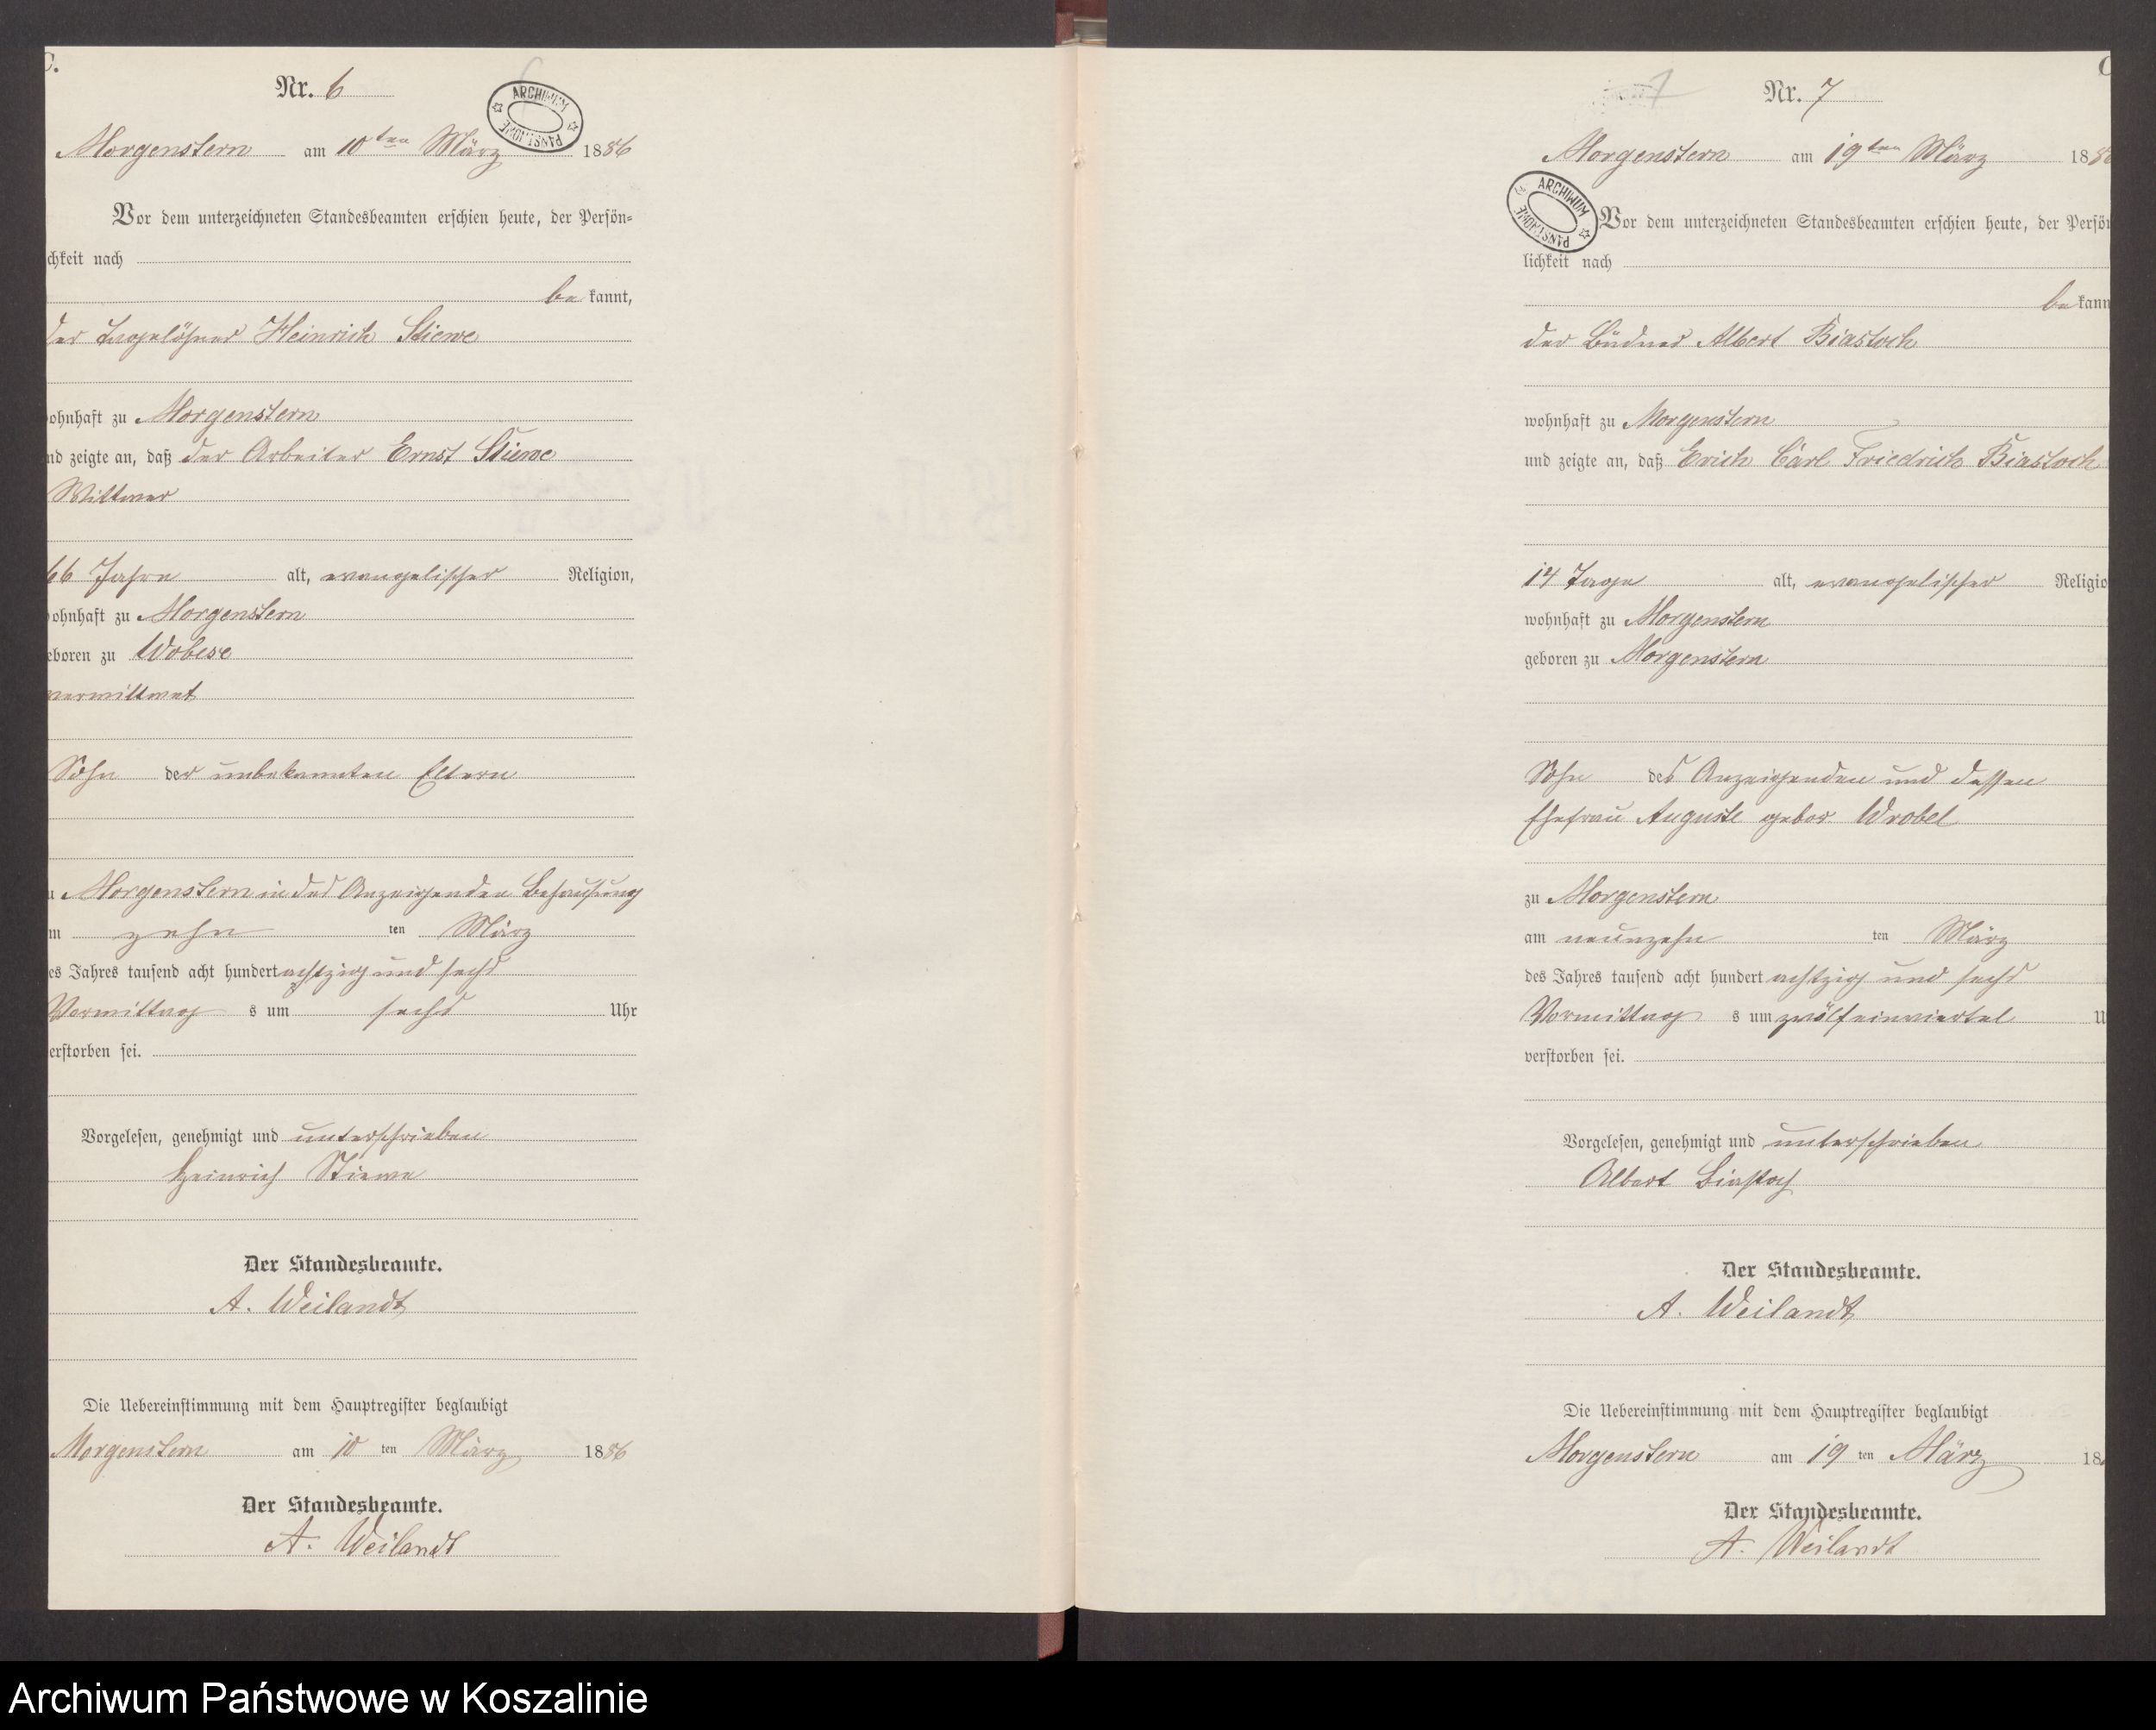 C.
Nr. 6
ARCHIWUM PAŃSTWOWE
Morgenstern am 10ten März 1886
Vor dem unterzeichneten Standesbeamten erschien heute, der Persön=
chkeit nach
be kannt,
der Tagelöhner Heinrich Stiewe
ohnhaft zu Morgenstern
nd zeigte an, daß der Arbeiter Ernst Stiewe
Wittwer
66 Jahre alt, evangelischer Religion,
ohnhaft zu Morgenstern
eboren zu Wobese
verwittwet
Sohn der unbekannten Eltern
u Morgenstern in des Anzeigenden Behausung
m zehn ten März
es Jahres tausend acht hundert achtzig und sechs
Vormittag s um sechs Uhr
erstorben sei.
Vorgelesen, genehmigt und unterschrieben
Heinrich Stiewe
Der Standesbeamte.
A. Weilandt
Die Uebereinstimmung mit dem Hauptregister beglaubigt
Morgenstern am 10 ten März 1886
Der Standesbeamte.
A. Weilandt
7
Nr. 7
C
Morgenstern am 19ten März 188
ARCHIWUM PAŃSTWOWE
Vor dem unterzeichneten Standesbeamten erschien heute, der Persön
lichkeit nach
be kann
der Büdner Albert Biastoch
wohnhaft zu Morgenstern
und zeigte an, daß Erich Carl Friedrich Biastoch
14 Tage alt, evangelischer Religio
wohnhaft zu Morgenstern
geboren zu Morgenstern
Sohn des Anzeigenden und dessen
Ehefrau Auguste gebor Wrobel
zu Morgenstern
am neunzehn ten März
des Jahres tausend acht hundert achtzig und sechs
Vormittag s um zwölfeinviertel U
verstorben sei.
Vorgelesen, genehmigt und unterschrieben
Albert Biastoch
Der Standesbeamte.
A. Weilandt
Die Uebereinstimmung mit dem Hauptregister beglaubigt
Morgenstern am 19 ten März 18
Der Standesbeamte.
A. Weilandt
Archiwum Państwowe w Koszalinie